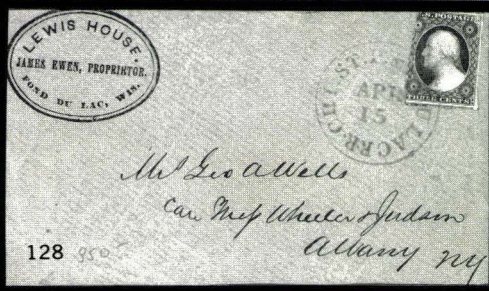 LEWIS HOUSE.
JAMES EWEN, PROPRIETOR.
FOND DU LAC, WIS.
U.S. POSTAGE
THREE CENTS
APR
15
Mr Geo A Wells
Care Mess Wheeler & Judson
Albany NY
128 950